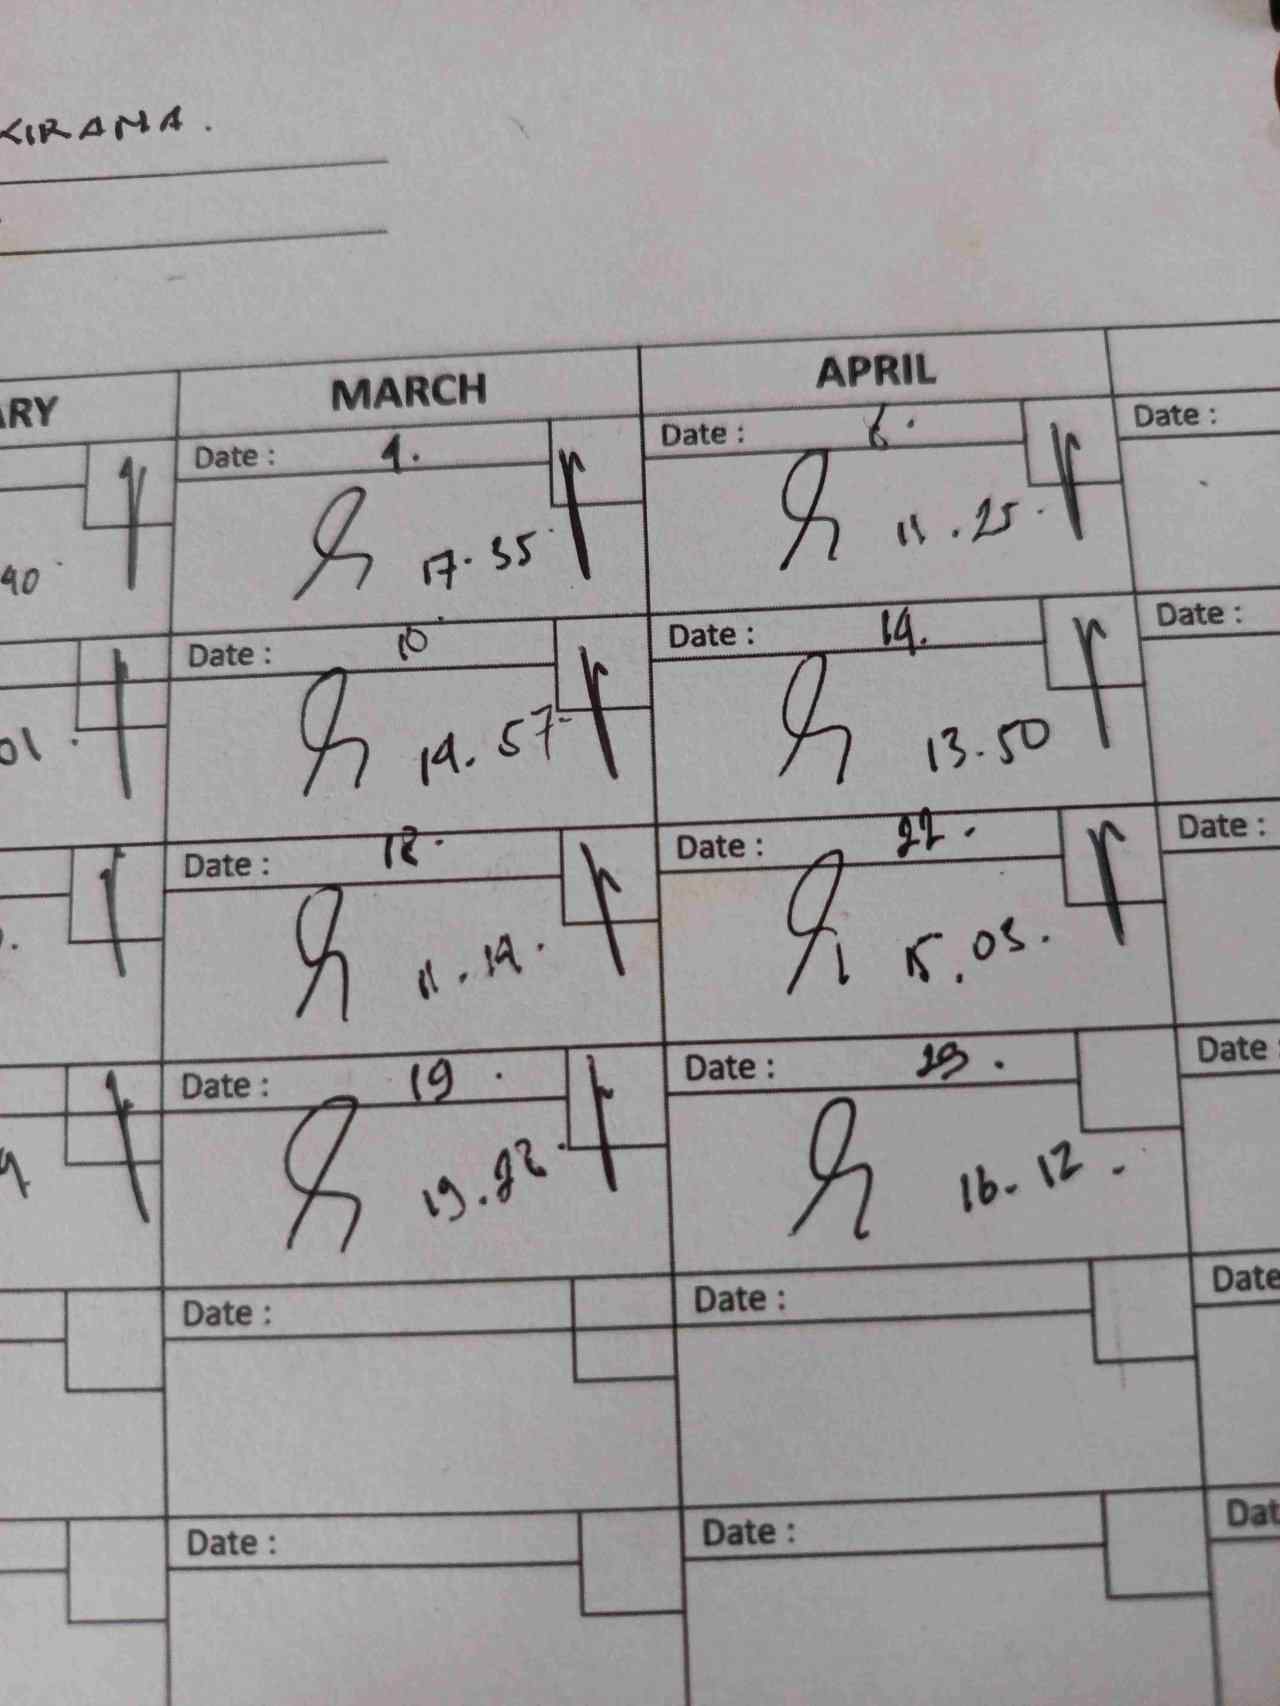 KIRANA.
ARY MARCH APRIL
Date : 4. Date : 6. Date :
40 17.35 11.25.
Date : 10 Date : 14. Date :
01. 14.57 13.50
Date : 12. Date : 22. Date :
11.14. 15.03.
Date : 19. Date : 23. Date :
19.22 16.12.
Date : Date : Date
Date : Date : Dat